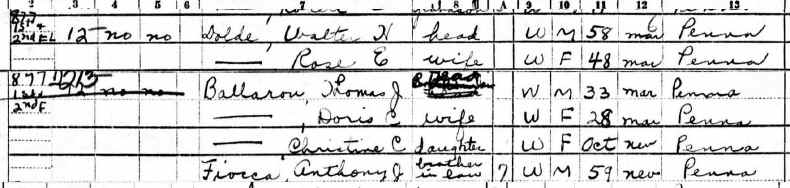 2 3 4 5 6 7 8 A 9 10 11 12 13
2nd FL 12 no no Dolde, Walter H head W M 58 mar Penna
—, Rose E wife W F 48 mar Penna
877 1213 Ballarou, Thomas J W M 33 mar Penna
12 no no
2nd F —, Doris C wife W F 28 mar Penna
—, Christine C daughter W F Oct nev Penna
Fiocca, Anthony J brother in law 7 W M 59 nev Penna